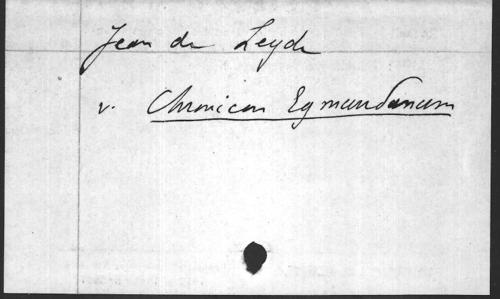 Jean de Leyde
v. Chronicon Egmundanum